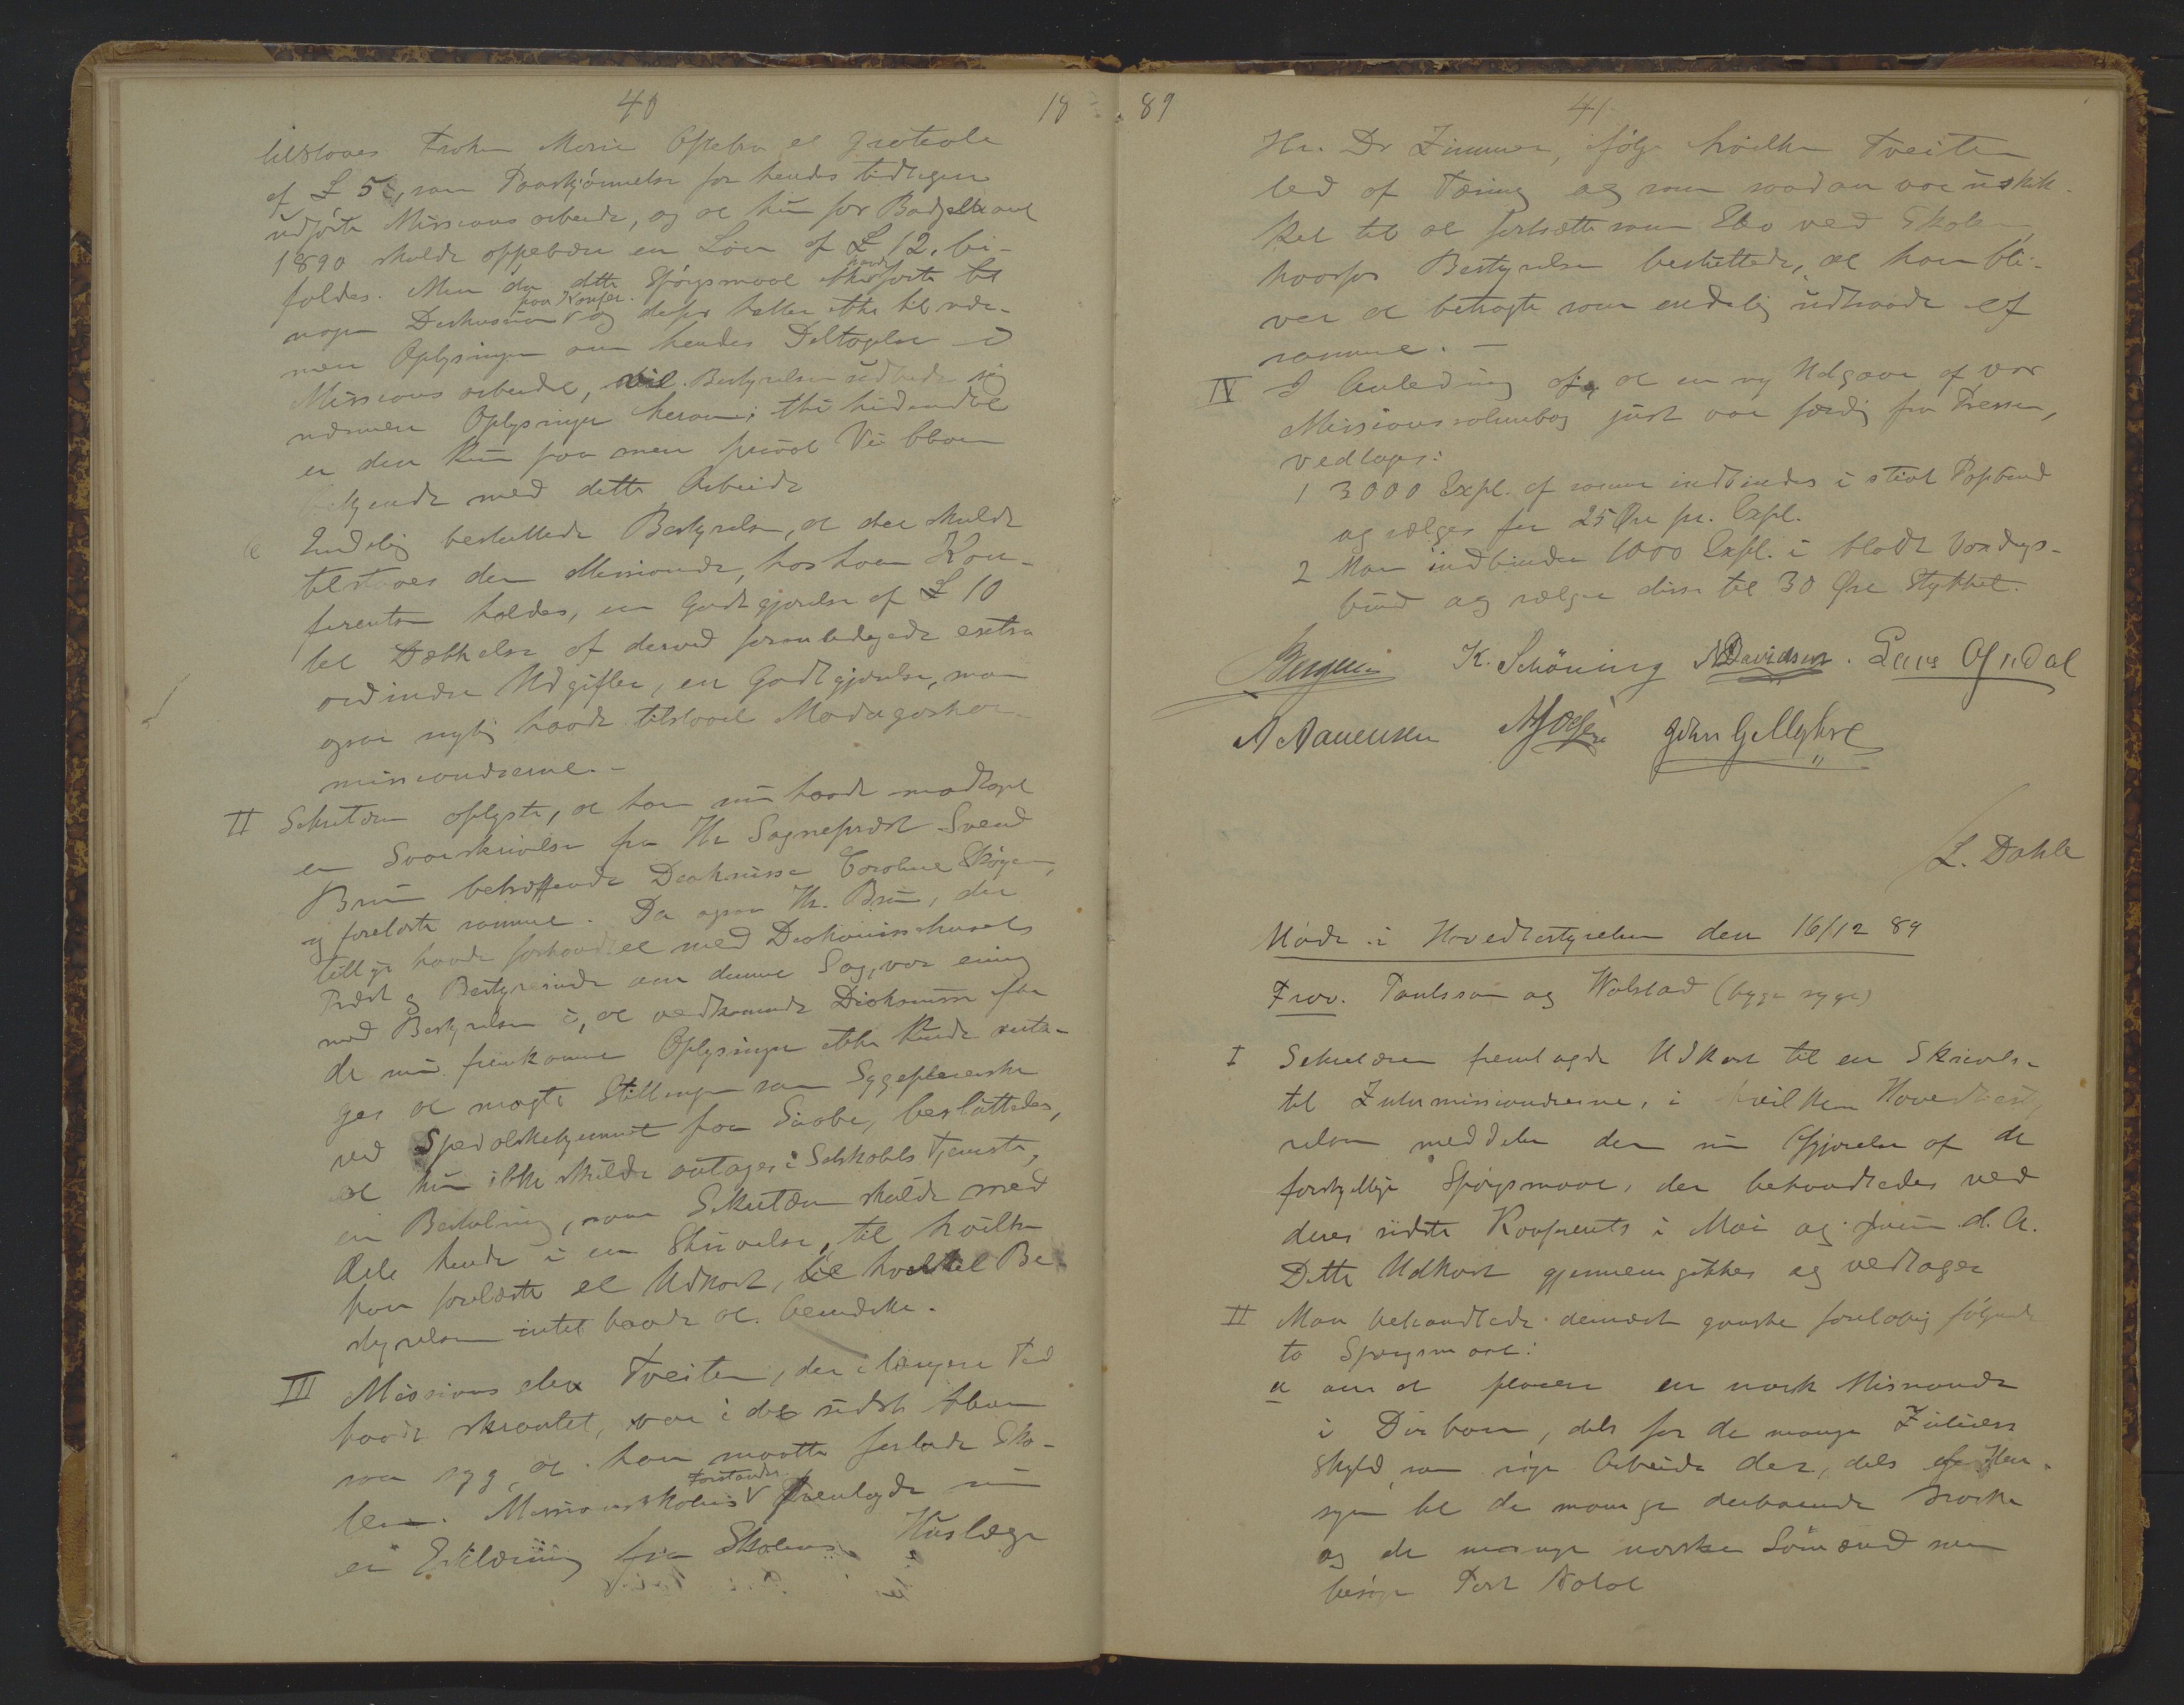 40 18
tilstaaes Frøken Marie Aftebro et gratiale
af £ 5, som Paaskjønnelse for hendes tidligere
udførte Missions arbeide, og at hun for Budgettaaret
1890 skulde oppebære en Løn af £ 12, bi-
faldes. Men da dette Spørgsmaal ikke havde førte til
nogen Diskussion paa Konfer. og derfor heller ikke til nær-
mere Oplysninger om hendes Deltagelse i
Missions arbeidet, vil Bestyrelsen udbede sig
nærmere Oplysninger herom; thi hidindtil
er den kun paa mere privat Vei bleven
bekjendt med dette Arbeide
c Endelig besluttede Bestyrelsen, at der skulde
tilstaaes den Missionær, hos hvem Kon-
ferentsen holdes, en Godtgjørelse af £ 10
til Dækkelse af derved foranledigede extra
ordinære Udgifter, en Godtgjørelse, man
ogsaa nylig havde tilstaaet Madagaskar-
missionærerne. -
II Sekretæren oplyste, at han nu havde modtaget
en Svarskrivelse fra Hr Sognepræst Svend
Brun betræffende Diakonisse Caroline Skogen,
og forelæste samme. Da ogsaa Hr. Brun, der
tillige havde forhandlet med Diakonissehusets
Præst og Bestyrerinde om denne Sag, var enig
med Bestyrelsen i, at vedkommende Diakonisse efter
de nu fremkomne Oplysninger ikke kunde anta-
ges at magte Stillingen som Sygepleierske
ved Spedalskehjemmet paa Sirabe, besluttedes,
at hun ikke skulde antages i Selskabets Tjeneste,
en Beslutning, som Sekretæren skulde med
dele hende i en Skrivelse, til hvilken
han forelæste et Udkast, til hvilket Be-
styrelsen intet havde at bemærke.
III Missions elev Tveiten, der i længere Tid
havde skrantet, var i det sidste bleven
saa syg, at han maatte forlade Sko-
len. Missionsskolens Forstander fremlagde nu
en Erklæring fra Skolens Huslæge
89 41
Hr. Dr Zimmer, ifølge hvilken Tveiten
led af Tæring og som saadan var uskik-
ket til at fortsætte som Elev ved Skolen,
hvorfor Bestyrelsen besluttede, at han bli-
ver at betragte som endelig udtraadt af
samme. -
IV I Anledning af, at en ny Udgave af vor
Missionssalmebog just var færdig fra Pressen,
vedtages:
1 3000 Expl. af samme indbindes i stivt Papbind
og sælges for 25 Øre pr. Expl.
2 Man indbinder 1000 Expl. i blødt Voxdugs-
bind og sælger disse til 30 Øre Stykket.
K. Schöning Davidsen. Lars Oftedal
A Aanensen John G Mykre
L. Dahle
Møde i Hovedbestyrelsen den 16/12 89
Frav. Paulsson og Walstad (begge syge)
I Sekretæren fremlagde Udkast til en Skrivelse
til Zulumissionærerne, i hvilken Hovedbesty
relsen meddeler den sin Afgjørelse af de
forskjellige Spørgsmaal, der behandledes ved
deres sidste Konferents i Mai og Juni d. A.
Dette Udkast gjennemgikkes og vedtages
II Man behandlede dernæst ganske foreløbig følgende
to Spørgsmaal:
a om at placere en norsk Missionær
i Durban, dels for de mange Zuluers
Skyld som søge Arbeide der, dels af Hen-
syn til de mange derboende Norske
og de mange norske Sømænd som
besøge Port Natal